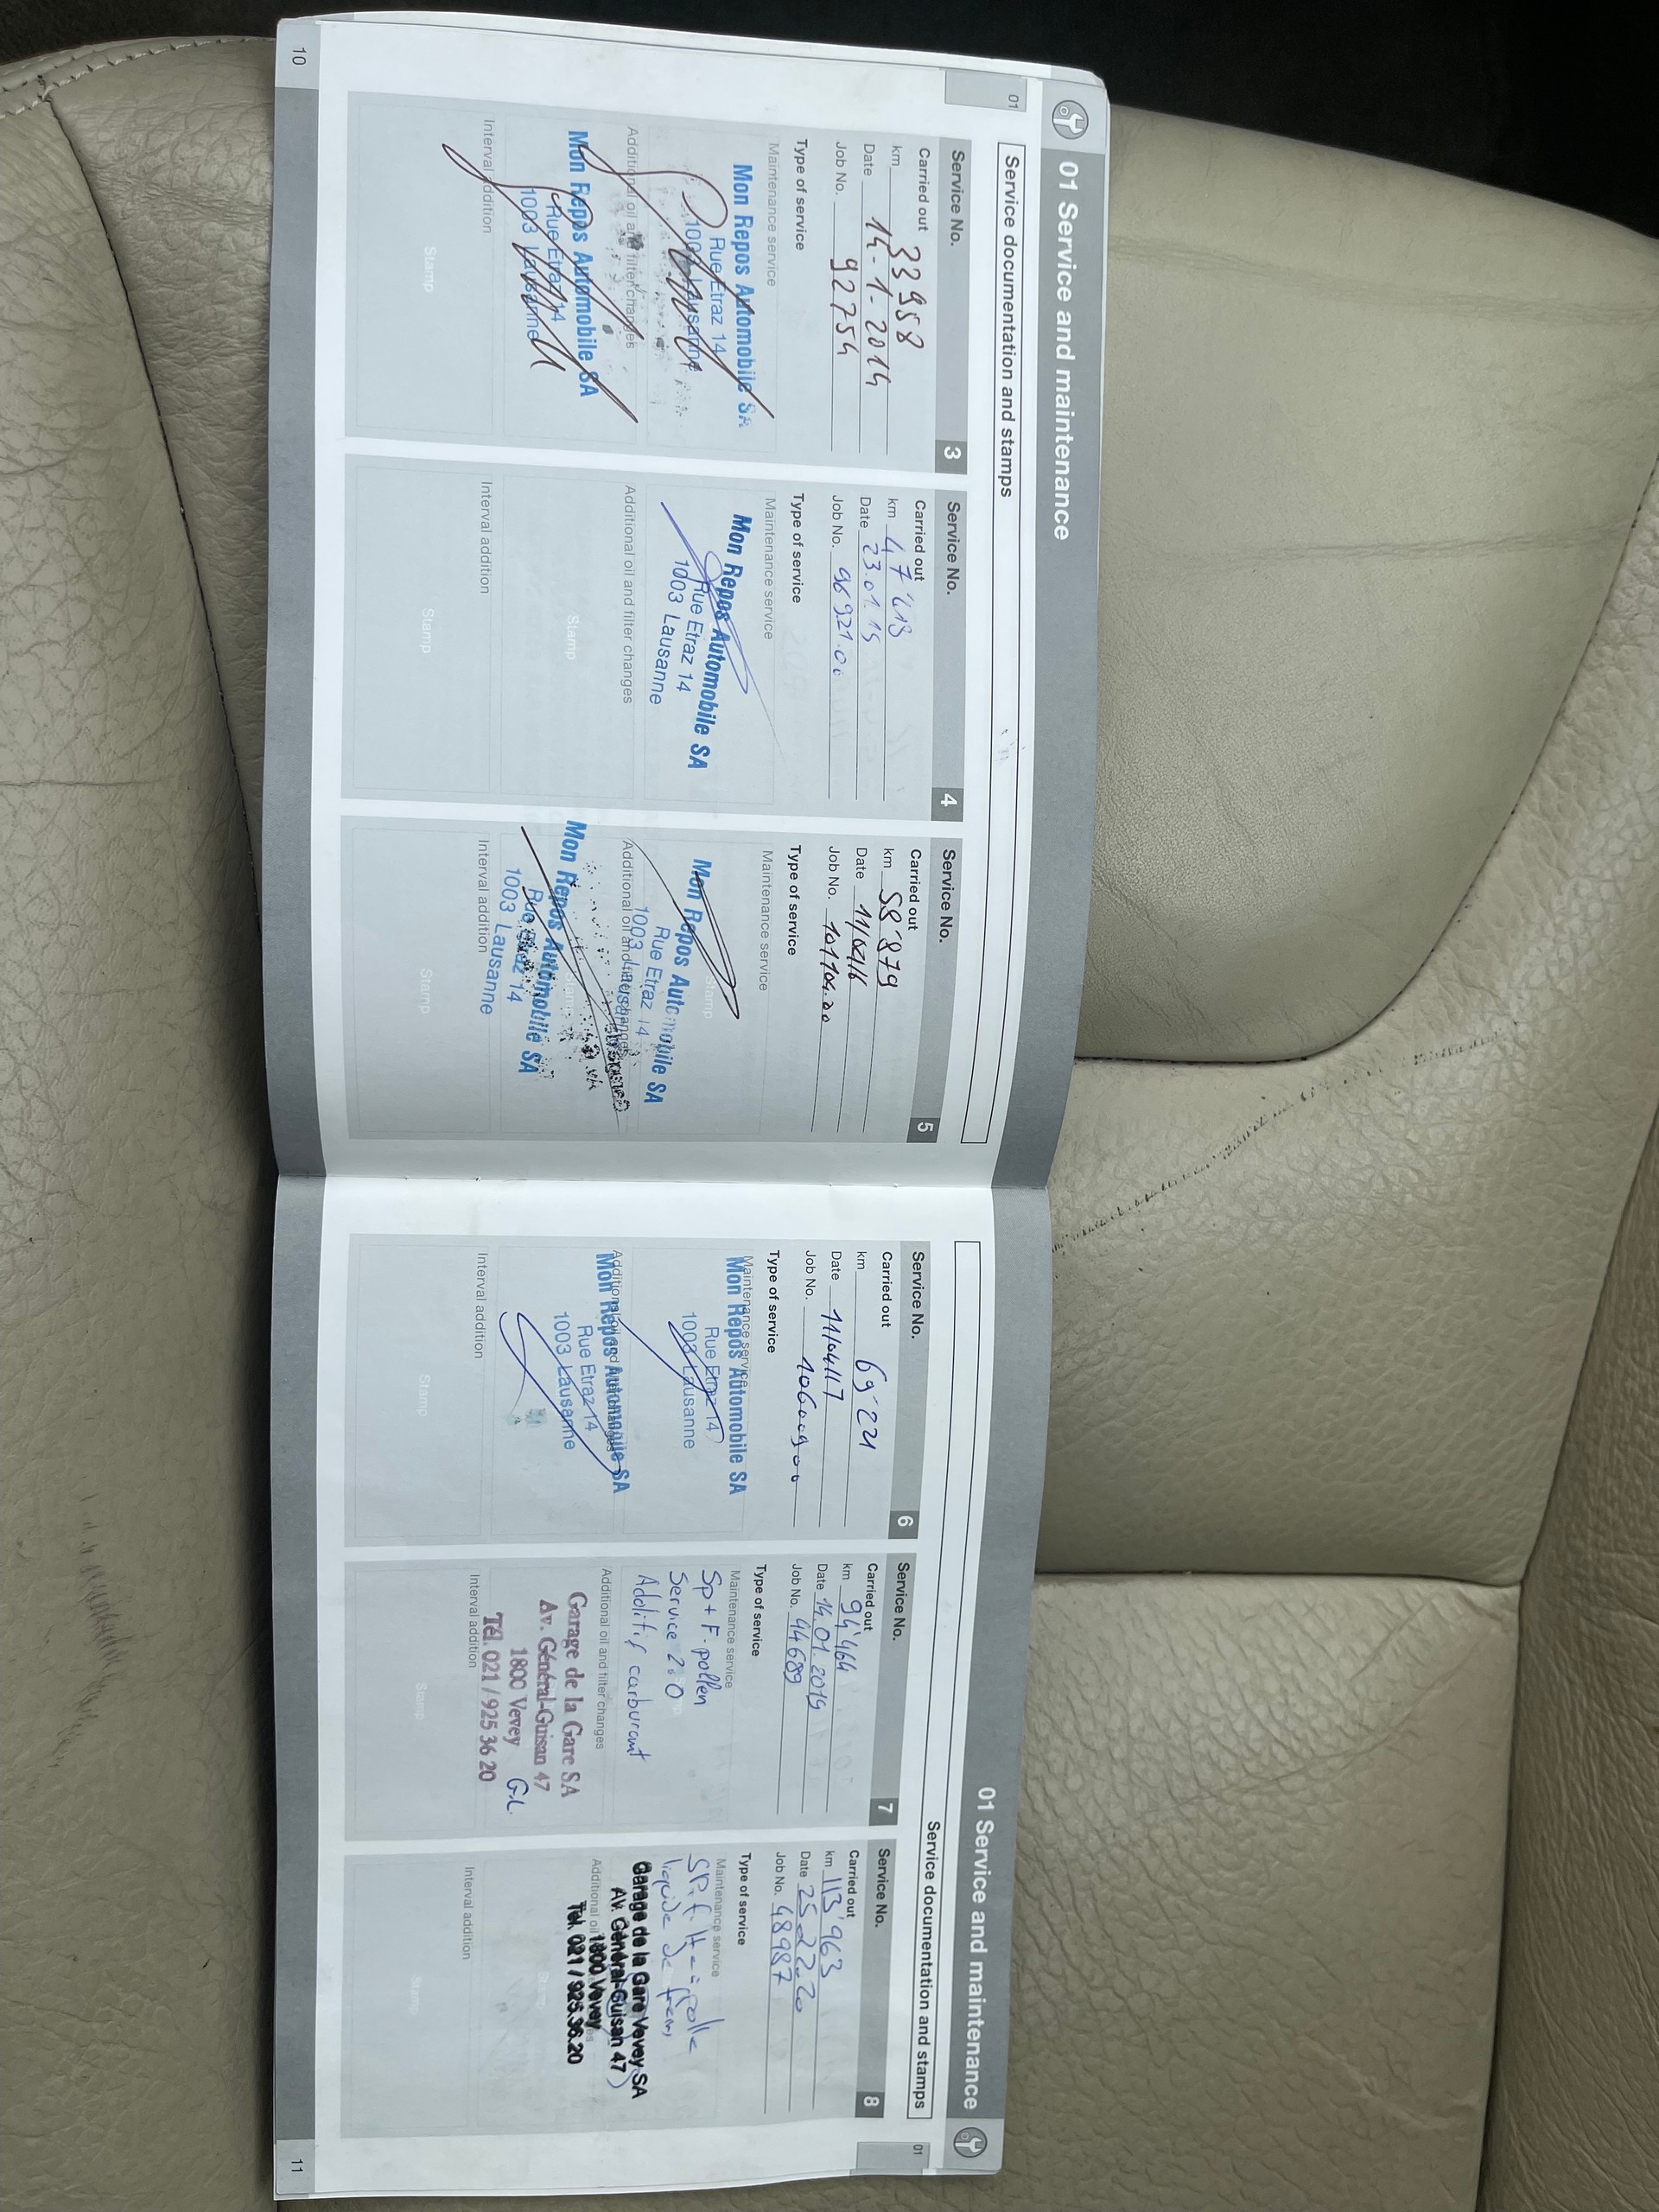 01 Service and maintenance
01
Service documentation and stamps
Service No. 3
Carried out
km 33958
Date 14-1-2014
Job No. 92754
Type of service
Maintenance service
Mon Repos Automobile SA
Rue Etraz 14
1003 Lausanne
Additional oil and filter changes
Mon Repos Automobile SA
Rue Etraz 14
1003 Lausanne
Interval addition
Stamp
Service No. 4
Carried out
km 47'413
Date 23.01.15
Job No. 96921.00
Type of service
Maintenance service
Mon Repos Automobile SA
Rue Etraz 14
1003 Lausanne
Additional oil and filter changes
Stamp
Interval addition
Stamp
Service No. 5
Carried out
km 58'879
Date 11/04/16
Job No. 101104.00
Type of service
Maintenance service
Stamp
Mon Repos Automobile SA
Rue Etraz 14
1003 Lausanne
Additional oil and filter changes
Mon Repos Automobile SA
Rue Etraz 14
1003 Lausanne
Interval addition
Stamp
10
01 Service and maintenance
01
Service documentation and stamps
Service No. 6
Carried out
km 69'221
Date 11/04/17
Job No. 106009.00
Type of service
Maintenance service
Mon Repos Automobile SA
Rue Etraz 14
1003 Lausanne
Additional oil and filter changes
Mon Repos Automobile SA
Rue Etraz 14
1003 Lausanne
Interval addition
Stamp
Service No. 7
Carried out
km 94'464
Date 14.01.2019
Job No. 44689
Type of service
Maintenance service
Sp + F. pollen
Service 2.0
Additif carburant
Additional oil and filter changes
Garage de la Gare SA
Av. Général-Guisan 47
1800 Vevey G.L.
Tél. 021 / 925 36 20
Interval addition
Stamp
Service No. 8
Carried out
km 113'963
Date 25.2.20
Job No. 48987
Type of service
Maintenance service
liquide de frein
Garage de la Gare Vevey SA
Av. Général-Guisan 47
Additional oil
1800 Vevey
Tél. 021 / 925.36.20
Interval addition
Stamp
11